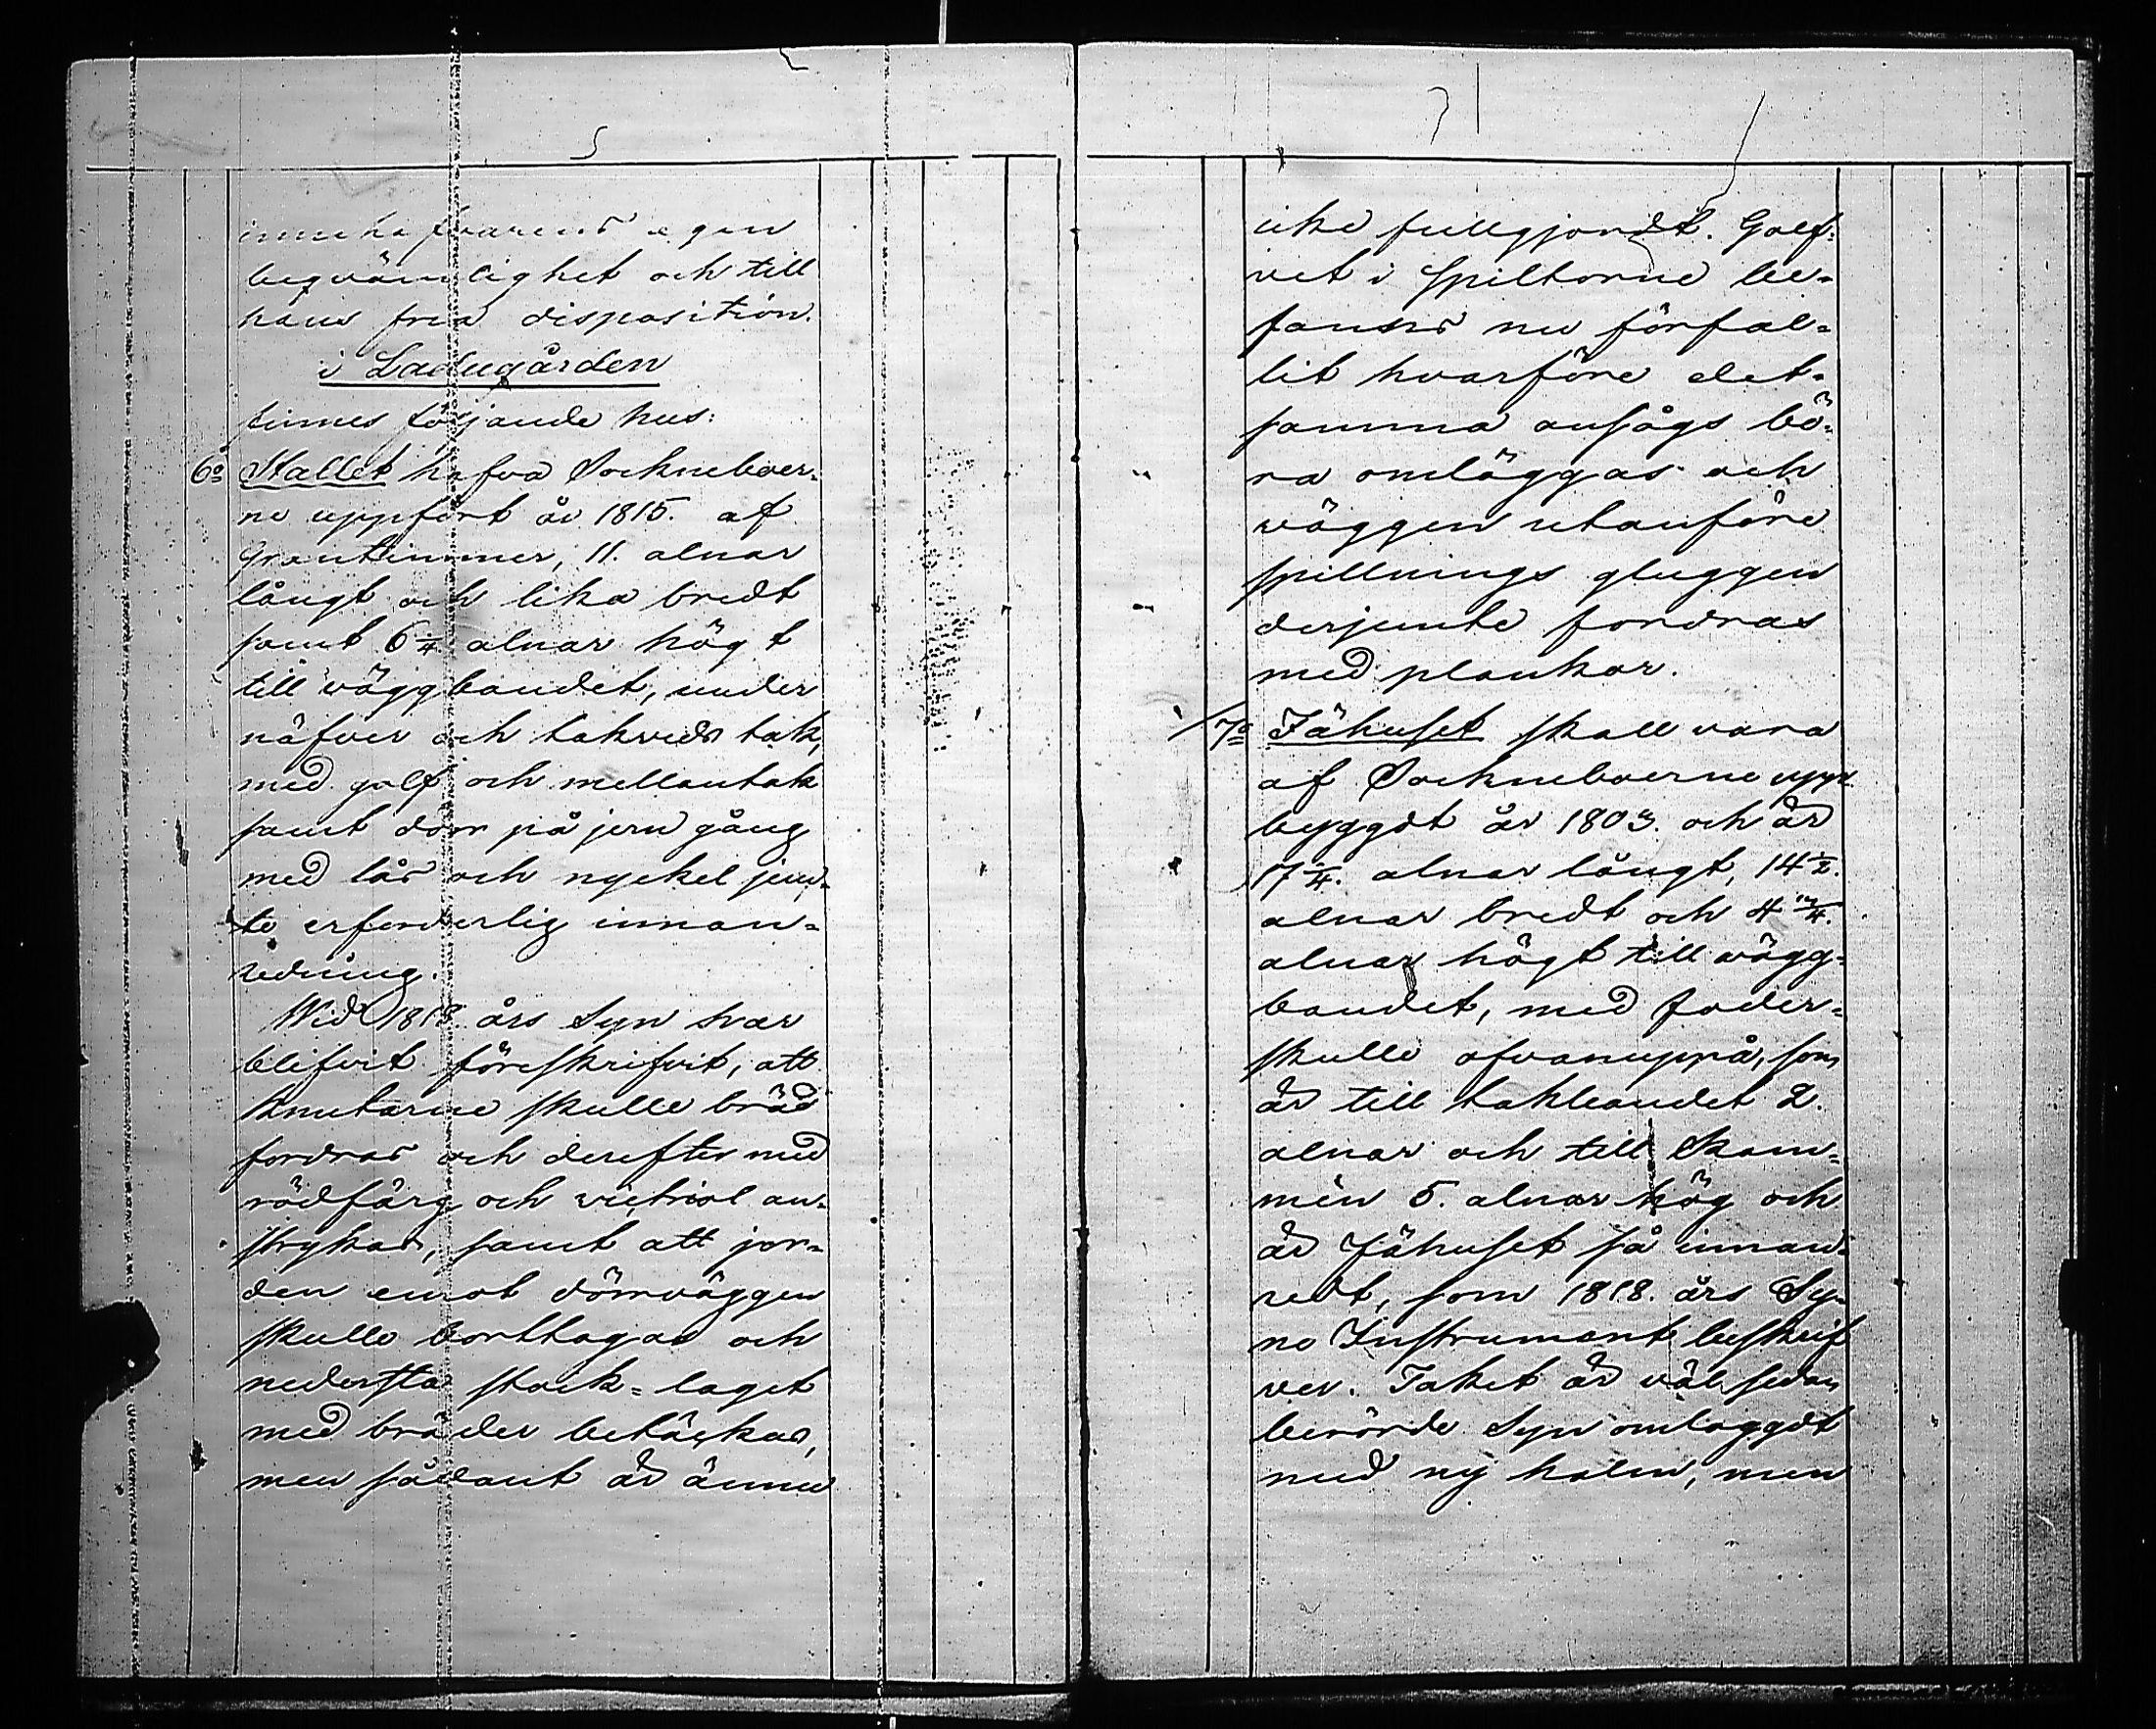 innehafvarens egen
beqvämlighet och till
hans fria disposition.
i Ladugården
finnes följande hus:
6o Stallet hafva Sockneboer-
ne uppfört år 1815. af
Grantimmer, 11. alnar
långt och lika bredt
samt 6 1/4 alnar högt
till väggbandet, under
näfver och takveds tak,
med golf och mellantak
samt dörr på jern gång
med lås och nyckel jem-
te erforderlig innan-
redning.
Wid 1818. års Syn har
blifvit föreskrifvit, att
knutarne skulle bräd
fordras och derefter med
rödfärg och victriol an-
strykas, samt att jor-
den emot dörrväggen
skulle borttagas och
nedersta stock-laget
med bräder betäckas,
men sådant är ännu
71
icke fullgjordt. Golf-
vet i Spiltorne be-
fanns nu förfal-
lit hvarföre det-
samma ansågs bö-
ra omläggas och
väggen utanföre
spillnings gluggen
derjemte fordras
med plankor.
7o Fähuset skall vara
af Sockneboerne upp-
byggdt år 1803. och är
17 1/4. alnar långt, 14 1/2.
alnar bredt och 4 3/4.
alnar högt till vägg-
bandet, med foder-
skulle ofvanuppå, som
är till takbandet 2.
alnar och till Kam-
men 5. alnar hög och
är Fähuset så innan-
redt, som 1818. års Sy-
ne Instrument beskrif
ver. Taket är väl sedan
berörde Syn omlaggdt
med ny halm, men